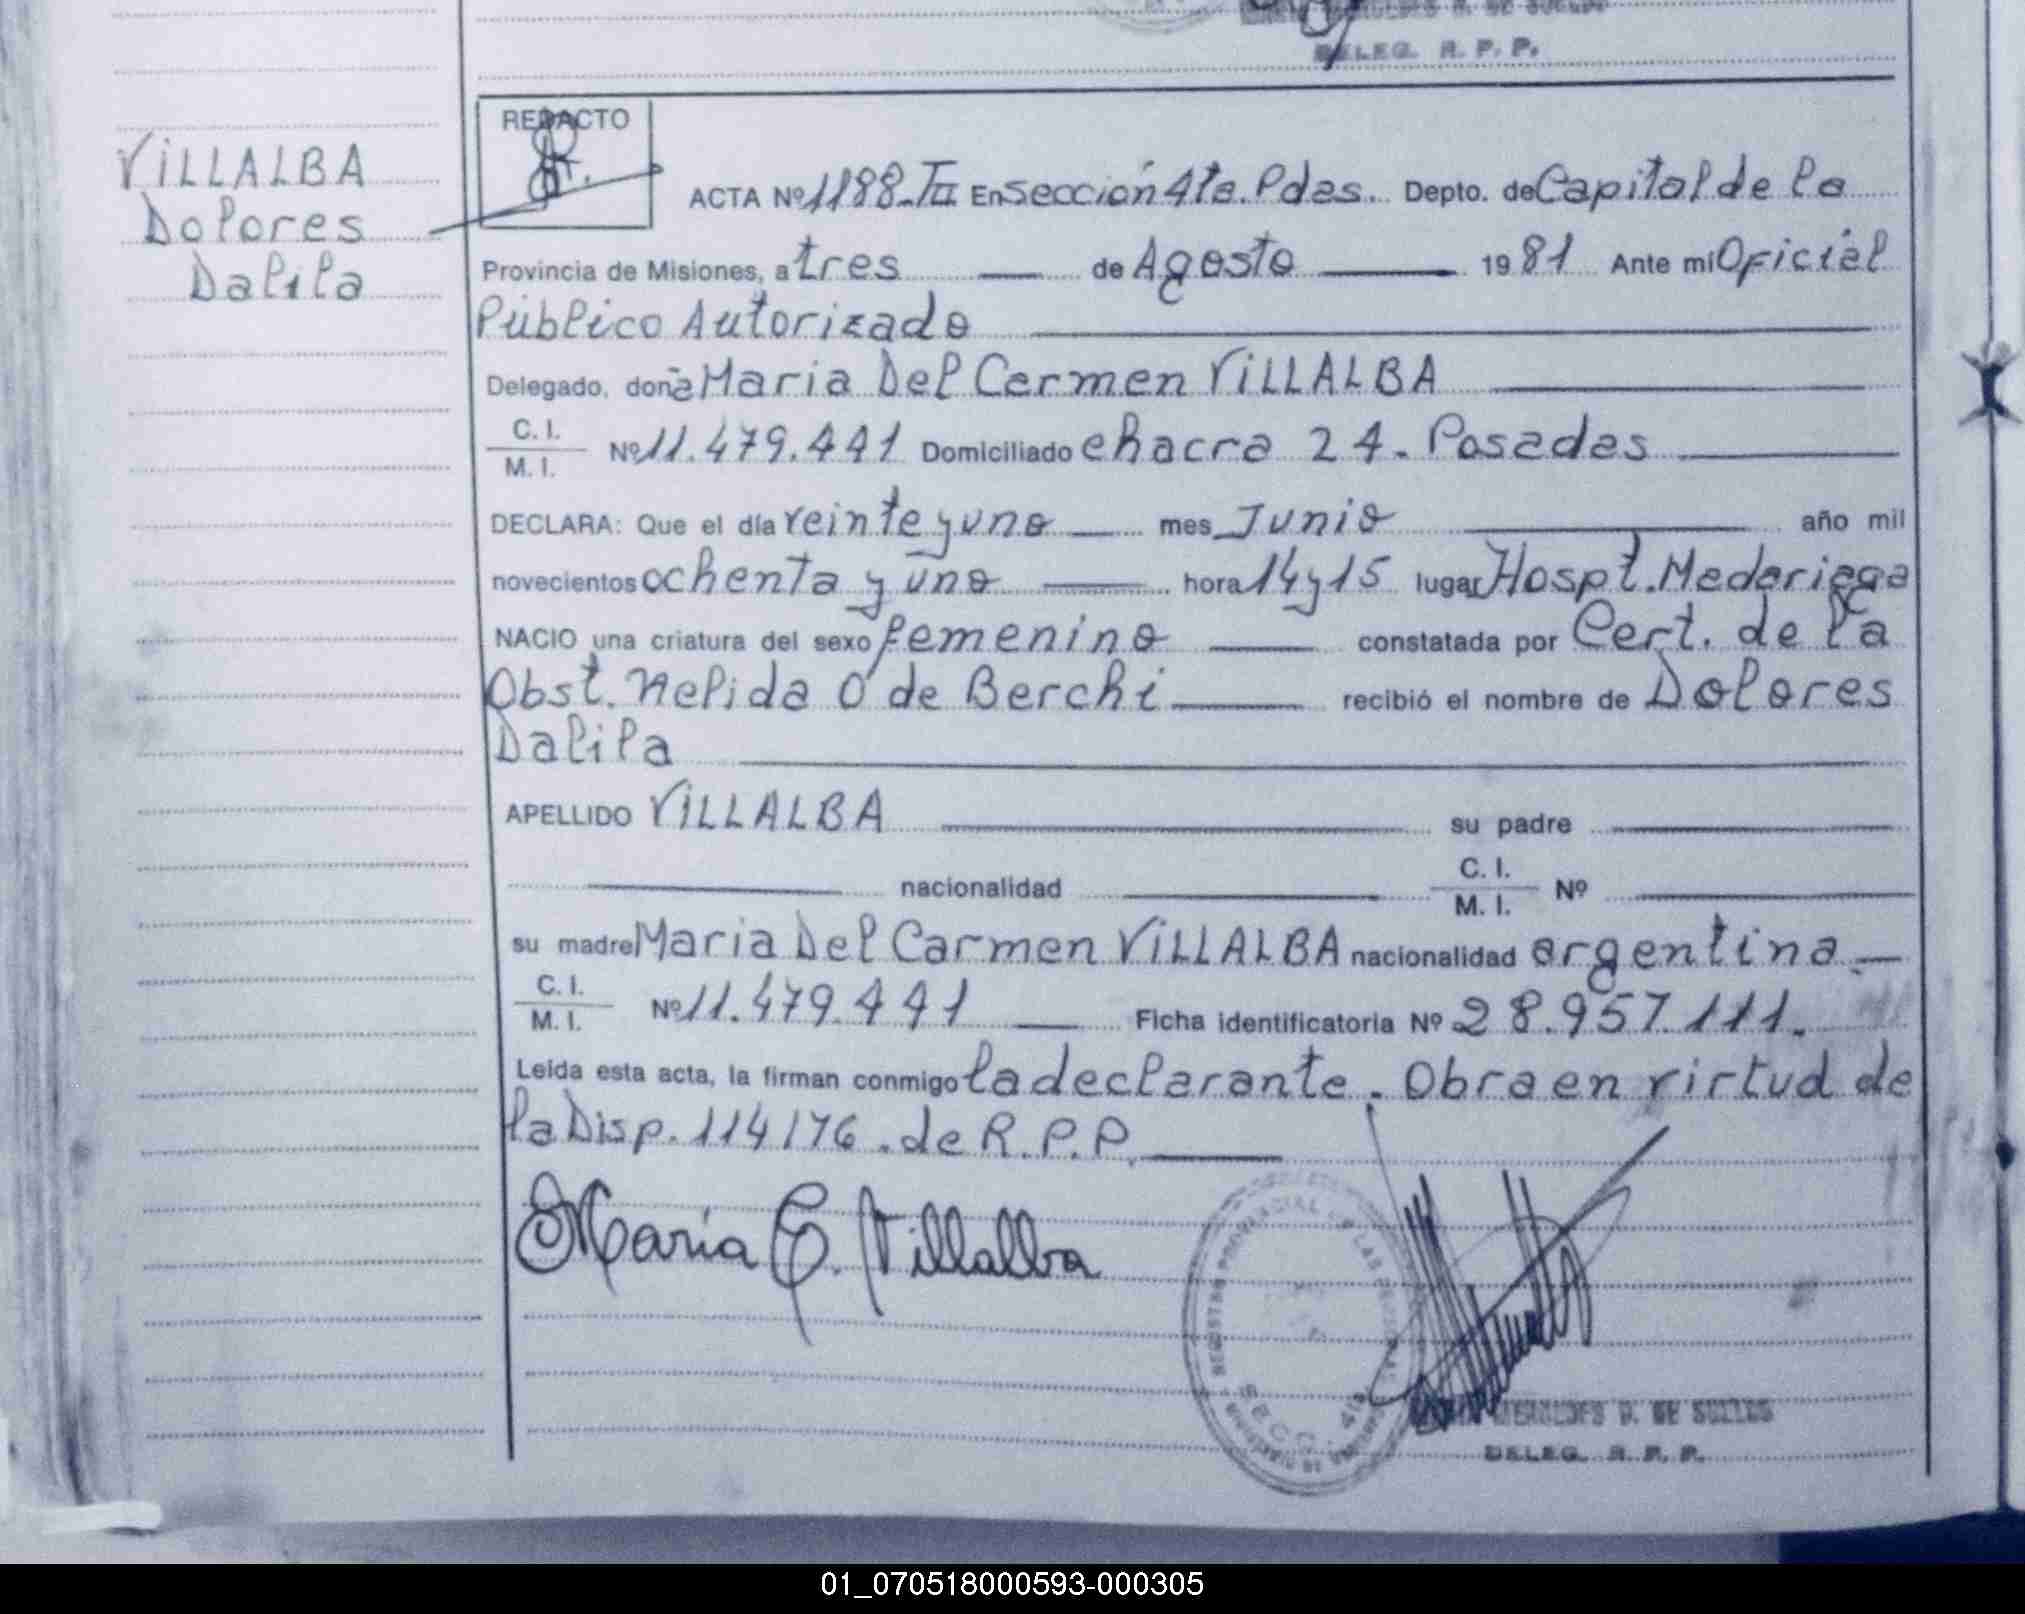 DELEG. R. P. P.
REDACTO
VILLALBA
Dolores
Dalila
ACTA Nº 1188-TII En sección 4ta. Pdas. Depto. de Capital de la
Provincia de Misiones, a tres de Agosto 1981 Ante mi Oficial
Público Autorizado
Delegado, doña Maria Del Carmen VILLALBA
C. I.
M. I. Nº 11.479.441 Domiciliado chacra 24. Posadas
DECLARA: Que el día veinte y uno mes Junio año mil
novecientos ochenta y uno hora 14 y 15 lugar Hospt. Madariaga
NACIO una criatura del sexo femenino constatada por Cert. de la
Obst. Nelida O de Berchi recibió el nombre de Dolores
Dalila
APELLIDO VILLALBA su padre
nacionalidad C. I.
M. I. Nº
su madre Maria Del Carmen VILLALBA nacionalidad argentina.
C. I.
M. I. Nº 11.479.441 Ficha identificatoria Nº 28.957.111.
Leída esta acta, la firman conmigo la declarante. Obra en virtud de
la Disp. 114/76. de R.P.P.
Maria C. Villalba
REGISTRO PROVINCIAL DE LAS PERSONAS
SECC. 4ta
DE SUELDO
DELEG. R. P. P.
01_070518000593-000305